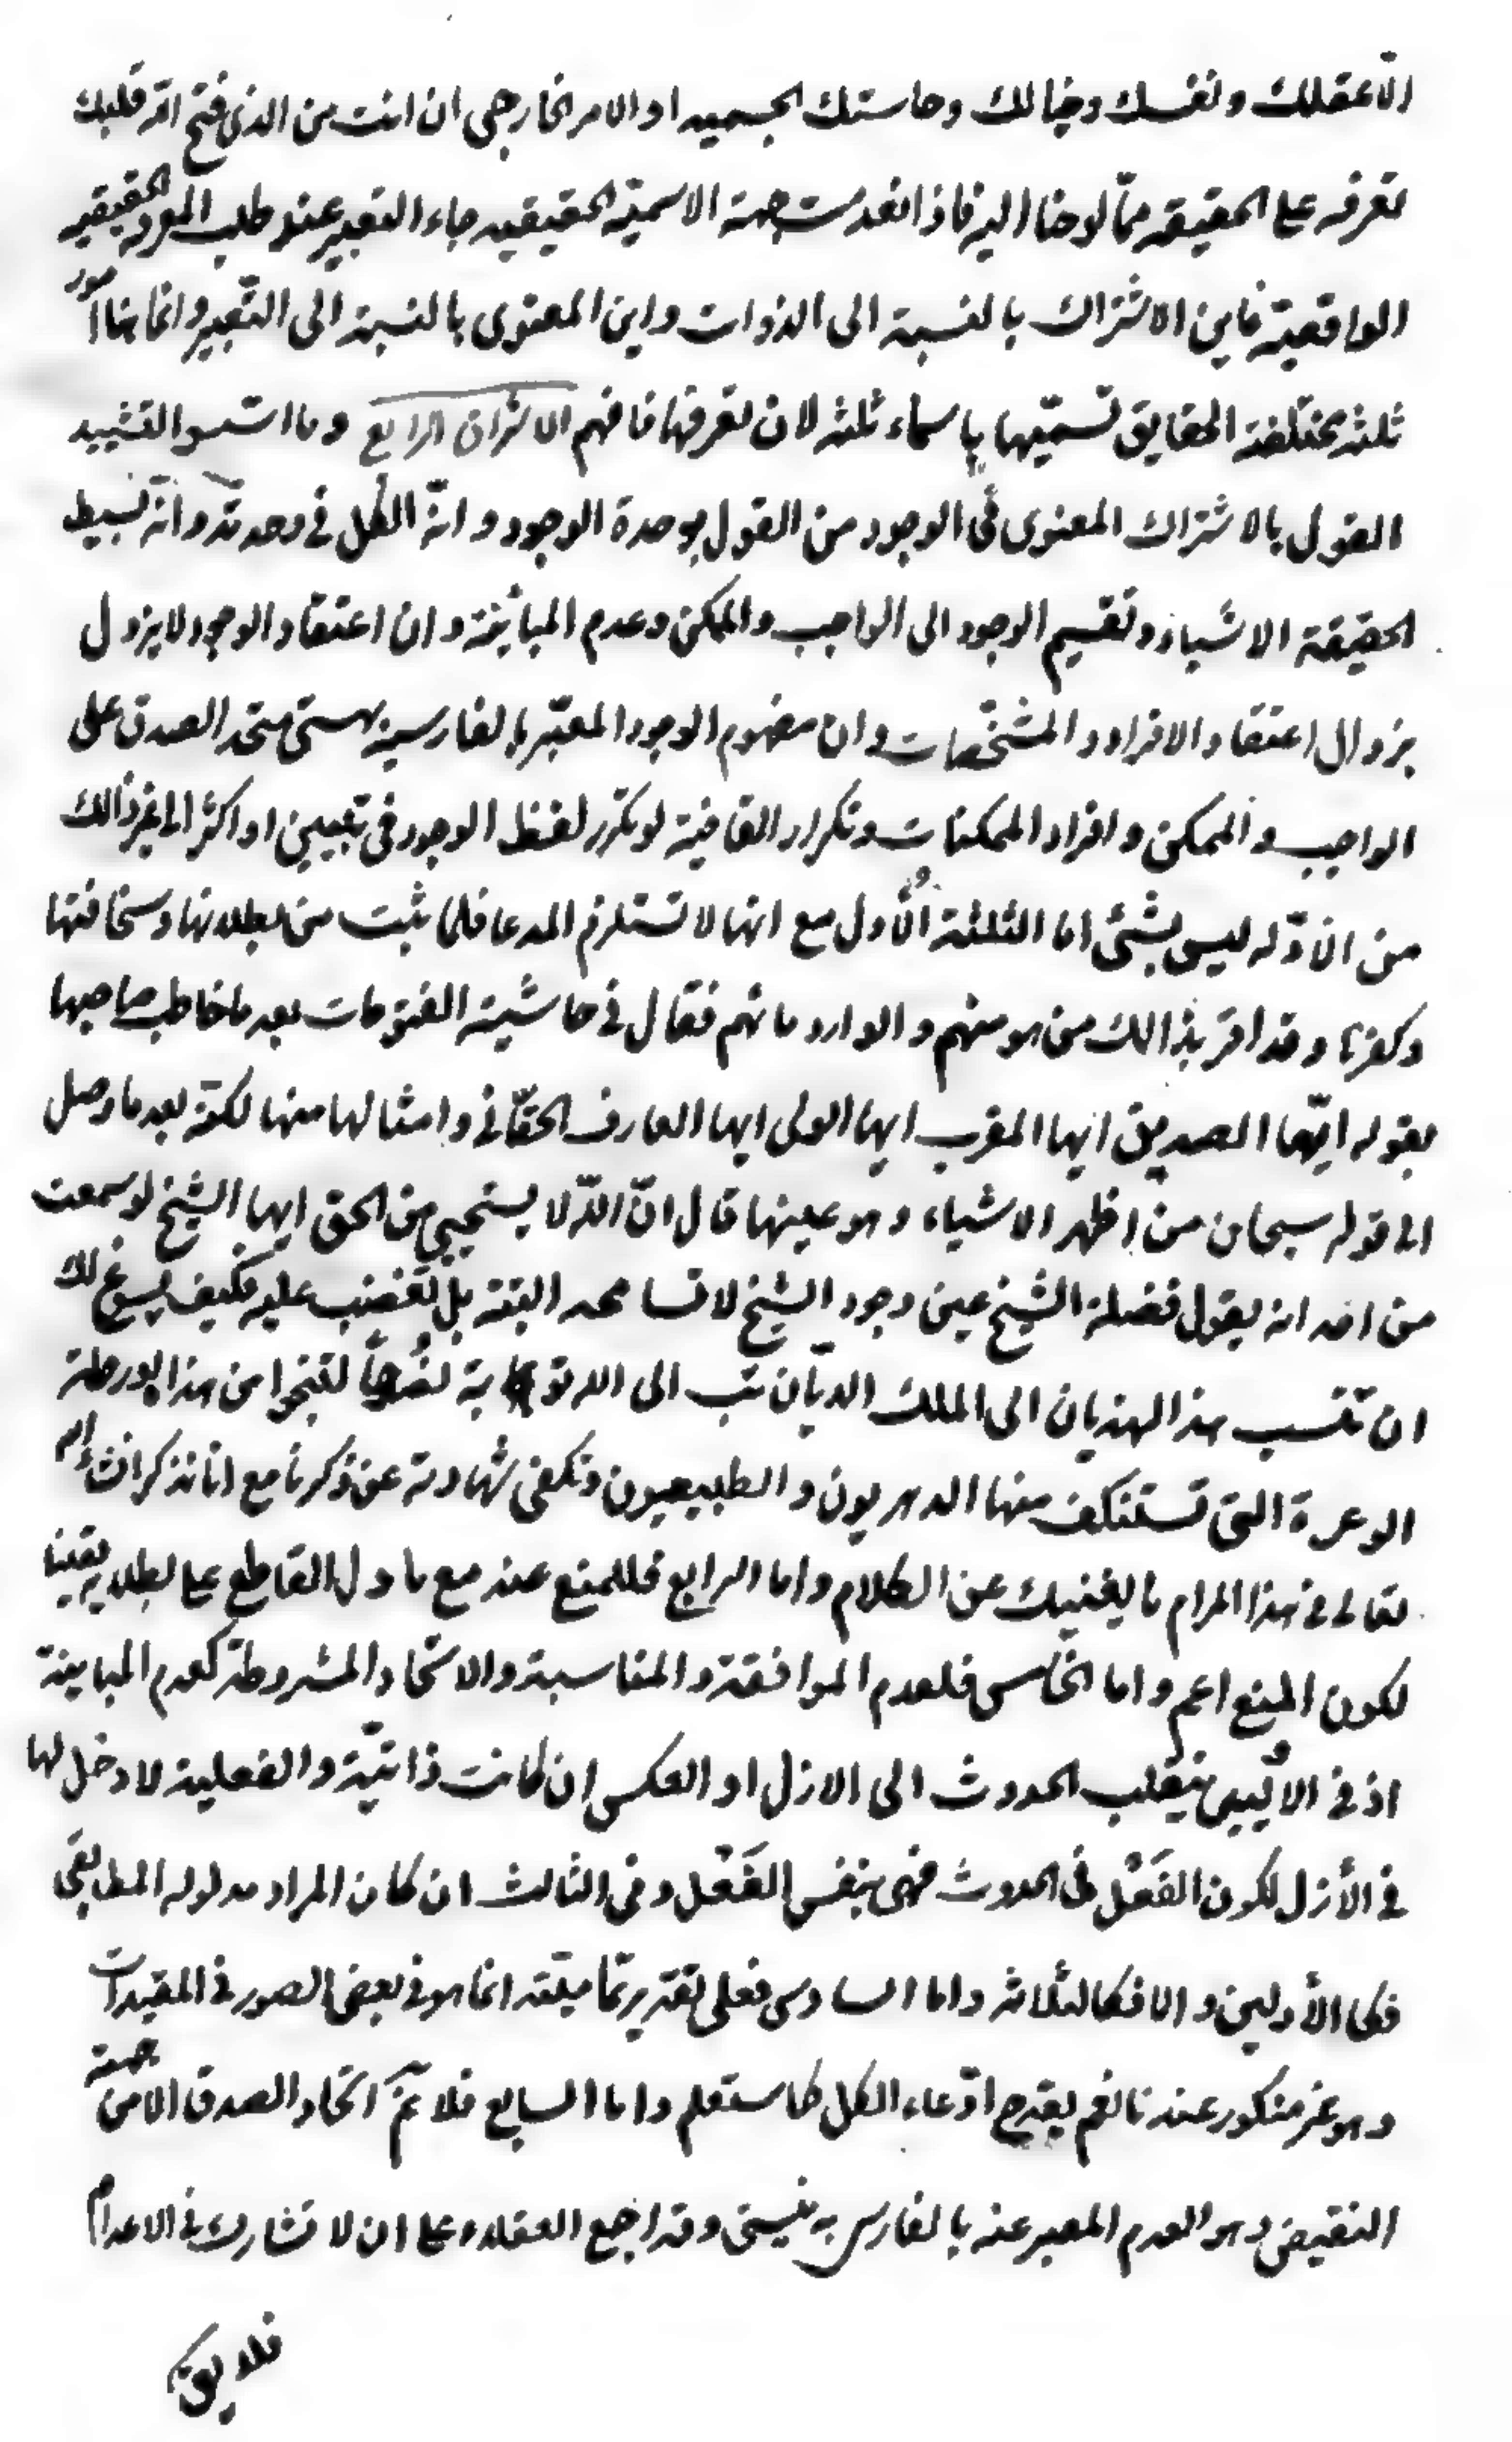 الّا عقلك ونفسك وخيالك وحاستك الجسميه او الامر الخارجي ان انت من الذى فتح الله قلبك
تعرفه على الحقيقه ممّا لوحنا اليه فاذا انعدمت جهة الاسميّة الحقيقيه جاء التعبير عند طلب المعرفة الحقيقيه
الواقعيّة فاين الاشتراك بالنسبة الى الذوات واين المعنوى بالنسبة الى التّعبير وانما هنا امور
ثلثة مختلفة الحقايق تسمّيها باسماء ثلثه لان تعرفها فافهم الاشراق الرابع وما استسوا لتشييد
القول بالاشتراك المعنوى فى الوجود من القول بوحدة الوجود وانّه الكل فى وحدته وانّه بسيط
الحقيقة الاشياء وتقسيم الوجود الى الواجب والممكن وعدم المباينة وان اعتقاد الوجود لا يزول
بزوال اعتقاد الافراد والمشخّصات وان مفهوم الوجود المعبّر بالفارسيه بهستى متحد الصدق على
الواجب والممكن وافراد الممكنات وتكرار القافية لو تكرّر لفظ الوجود فى تبعيين او اكثر الى غير ذالك
من الادّله ليس بشئ اما الثلثة الأُول مع انها لا تستلزم المدعا فلما ثبت من بطلانها وسخافتها
وكفرنا وقد اقر بذالك من هو منهم والوارد مائهم فقال فى حاشية الفتوحات بعد ما خاطب صاحبها
بقوله ايّها الصديق ايها المقرب ايها الولى ايها العارف الحقّانى وامثالها منها لكنّه بعد ما وصل
الى قوله سبحان من اظهر الاشياء وهو عينها قال انّ اللّه لا يستحيي من الحق ايها الشيخ لو سمعت
من احد انه يقول فضلة الشيخ عين وجود الشيخ لا تسامحه البتة بل تغضب عليه فكيف يسوغ لك
ان تنسب هذا الهذيان الى الملك الديّان تب الى الله توبة نصُوحاً لتنجوا من هذا الورطة
الوعرة التى تستنكف منها الدهريون والطبيعيون وتكفى شهادته عن ذكرنا مع انا نذكر انشاء الله
تعالى فى هذا المرام ما يغنيك عن الكلام واما الرابع فللمنع عنه مع ما دل القاطع على بطلانه يقينا
لكون المنع اعم واما الخامس فلعدم الموافقة والمناسبة والاتحاد المشروطة كعدم المباينة
اذ فى الاُليين ينقلب الحدوث الى الازل او العكس ان كانت ذاتيّة والفعلية لا دخل لها
فى الأزل لكون الفَعْل فى الحدوث فهى بنفس الفَعْل وفى الثالث ان كان المراد مدلوله المطابقى
فكالأولين والا فكالثلاثه واما السادس فعلى تقدير تماميّته انما هو فى بعض الصور فى المقيدات
وهو غير منكور عندنا نعم يقدح ادّعاء الكل كما ستعلم واما السابع فلا يتمّ اتحاد الصدق الا من جهة
النقيض وهو العدم المعبر عنه بالفارسى به نيستى وقد اجمع العقلاء على ان لا تشارك فى الاعدام
فلا يق